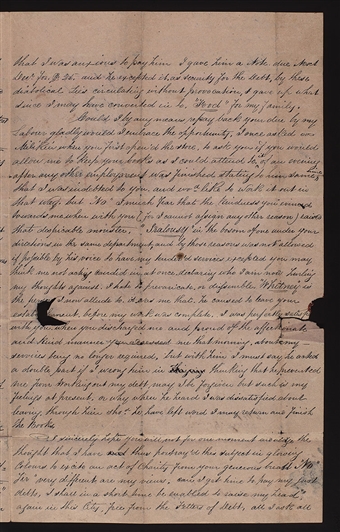 that I was anxious to pay him I gave him a Note due Next
Decr for $ 36. and he excepted it as security for the Debt, by these
diabolical Lies circulating without provocation, I gave up what
since I may have converted in to, "Food" for my family.
Could I by any means repay back you due by my
Labour gladly would I embrace the opportunity, I once asked
when you first open'd the store, to ask you if you would
allow me to keep your books as I could attend to it of an evening
after any other employment was finished stating to him
that I was indebted to you and would like to work it out in
that way. but "No" I much fear that the kindness you
towards me when with you (for I cannot assign any other reason)
that despicable monster, "Jealousy" in the bosom of one under your
directions in the same department, and by those reasons was not allowed
if possible by his voice to have my services excepted you may
think me not only candid in at once declaring who I am now hurling
my thoughts against. I hate to prevaricate, or dissemble "Whitney" is
the name I now allude to. it was me that, he caused to leave your
establishment, before my work was complete, I was perfectly
with you when you discharged me and proud of the affectionate
and kind manner you me that morning, about my
services being no longer required, but with him I must say he acted
a double part if I wrong him in thinking that he prevented
me from working out my debt, may I be forgiven but such is my
feelings at present, or why when he heard I was dissatisfied about
leaving through him who he have left word I may return and finish
the Books
I sincerely hope you will not for one moment
thought that I have thus portray'd the subject in glowing
Colours to excite an act of Charity from your generous breast "No"
for very different are my views, can I get time to pay my just
debts, I shall in a short time be enabled to raise my "head"
again in this City, free from the Fetters of Debt, all I ask all